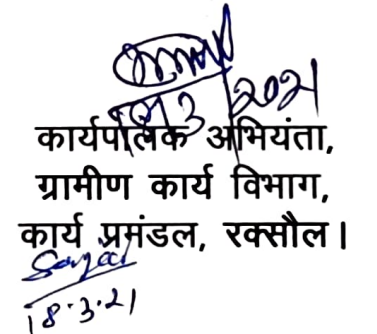 2021
कार्यपालक अभियंता,
ग्रामीण कार्य विभाग,
कार्य प्रमंडल, रक्सौल।
18.3.21